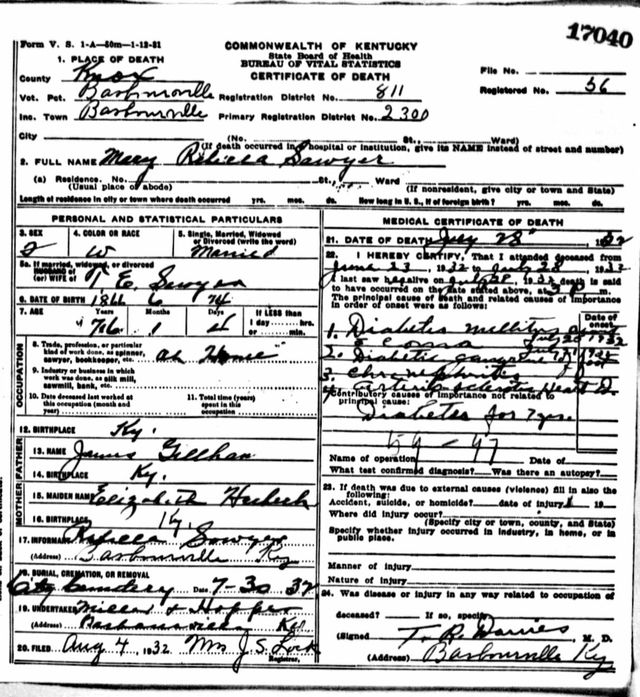 17040
Form V. S. 1-A—50m—1-12-31
COMMONWEALTH OF KENTUCKY
State Board of Health
BUREAU OF VITAL STATISTICS
CERTIFICATE OF DEATH
1. PLACE OF DEATH
County Knox
File No.
Vot. Pct. Barbourville Registration District No. 811
Registered No. 56
Inc. Town Barbourville Primary Registration District No. 2300
City (No. St., Ward)
(If death occurred in hospital or institution, give its NAME instead of street and number)
2. FULL NAME Mary Sawyer
(a) Residence. No. St., Ward
(Usual place of abode) (If nonresident, give city or town and State)
Length of residence in city or town where death occurred yrs. mos. ds. How long in U. S., if of foreign birth? yrs. mos. ds.
PERSONAL AND STATISTICAL PARTICULARS
3. SEX 4. COLOR OR RACE 5. Single, Married, Widowed or Divorced (write the word)
W Married
5a. If married, widowed, or divorced
HUSBAND of
(or) WIFE of E. Sawyer
6. DATE OF BIRTH 6 24
7. AGE Years Months Days If LESS than
1 day hrs.
or min.
76 1 4
OCCUPATION
8. Trade, profession, or particular
kind of work done, as spinner,
sawyer, bookkeeper, etc. at Home
9. Industry or business in which
work was done, as silk mill,
sawmill, bank, etc.
10. Date deceased last worked at
this occupation (month and
year)
11. Total time (years)
spent in this
occupation
12. BIRTHPLACE Ky.
FATHER
13. NAME James
14. BIRTHPLACE Ky.
MOTHER
15. MAIDEN NAME Elizabeth
16. BIRTHPLACE Ky.
17. INFORMANT Sawyer
(Address) Barbourville Ky
18. BURIAL, CREMATION, OR REMOVAL
City Cemetery Date 7-30 32
19. UNDERTAKER Miller & Hopper
(Address) Barbourville Ky
20. FILED Aug 4, 1932 Mrs J. S. Lock
Registrar.
MEDICAL CERTIFICATE OF DEATH
21. DATE OF DEATH July 28 1932
22. I HEREBY CERTIFY, That I attended deceased from
June 23, 1932 to July 28, 1932
I last saw h alive on July 28, 1932 death is said
to have occurred on the date stated above, at
The principal cause of death and related causes of importance
in order of onset were as follows:
Date of
onset
1. Diabetes mellitus
Coma July 1932
2. Diabetic gangrene foot
3. Chr nephritis
4. arterio sclerotic Heart D.
Contributory causes of importance not related to
principal cause:
Diabetes for 7 yrs.
59-47
Name of operation Date of
What test confirmed diagnosis? Was there an autopsy?
23. If death was due to external causes (violence) fill in also the
following:
Accident, suicide, or homicide? date of injury 19
Where did injury occur?
(Specify city or town, county, and State)
Specify whether injury occurred in industry, in home, or in
public place.
Manner of injury
Nature of injury
24. Was disease or injury in any way related to occupation of
deceased? If so, specify
(Signed) T. R. Davies, M. D.
(Address) Barbourville Ky